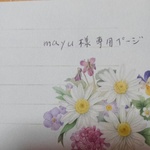 mayu様専用ページ